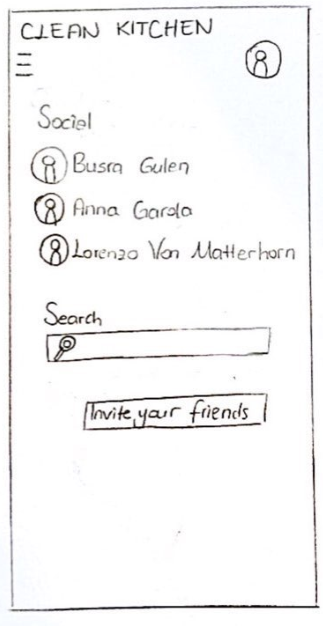 CLEAN KITCHEN
Social
Busra Gulen
Anna Garola
Lorenzo Von Matterhorn
Search
Invite your friends